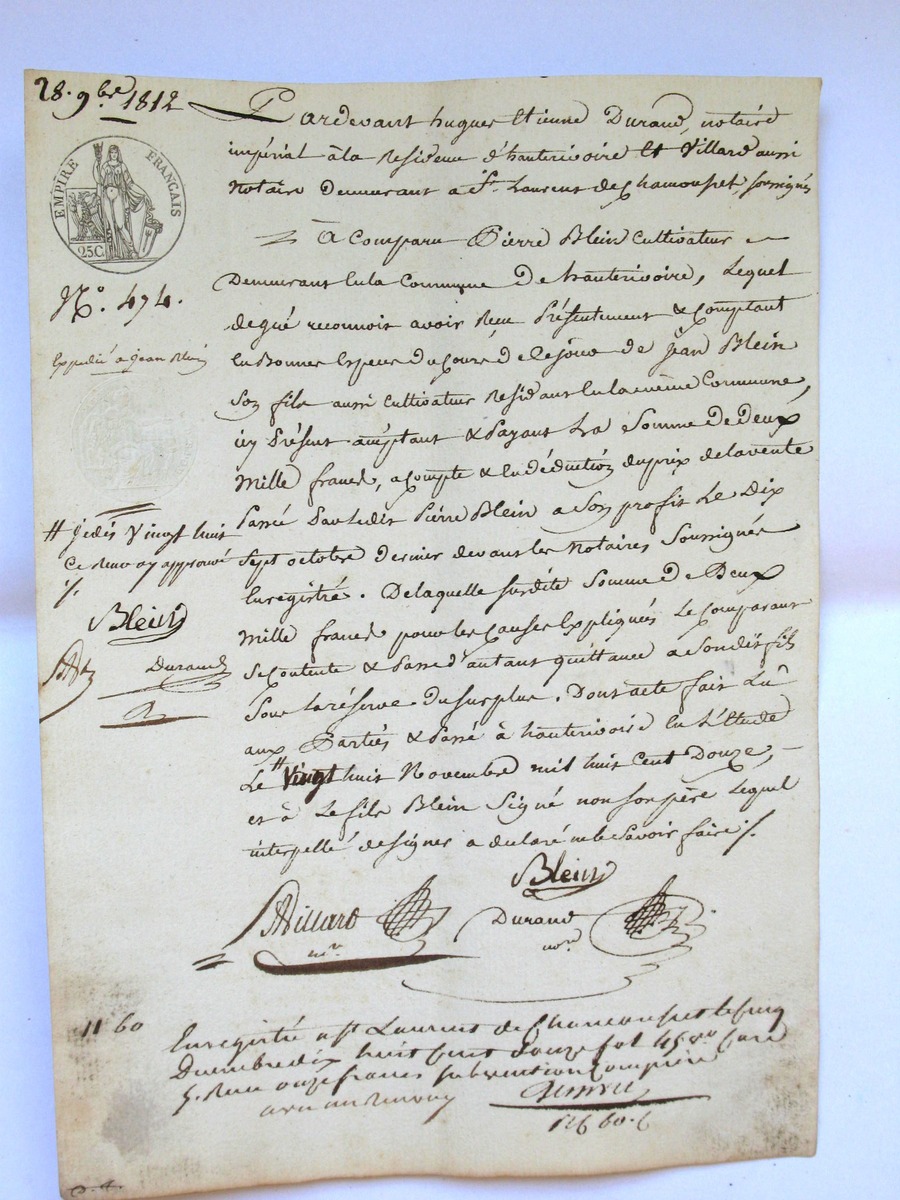 28. 9bre 1812
EMPIRE FRANÇAIS
25 C.
N.o 474.
Expédié à Jean Blein
Pardevant hugues Etienne Durand, notaire
impérial à la Residence d'hauterivoire Et Villard aussi
Notaire Demeurant a St. Laurent de Chamousset, soussignés
A Comparu Pierre Blein Cultivateur
Demeurant En la Commune De hauterivoire, Lequel
de gré reconnoit avoir Reçu Présentement & Comptant
En Bonnes Especes du Cours de Ce jour de jean Blein
Son fils aussi Cultivateur Residant En la même Commune,
icy Présent acceptant & Payant La Somme De deux
Mille francs, a Compte & En déduction du prix de la vente
Passé Par Ledit Pierre Blein a Son profit Le Dix
Sept octobre Dernier devant les Notaires Soussignés
Enregistré. De laquelle susdite Somme De Deux
Mille francs pour les Causes Expliquées Le Comparant
Se Contente & Passe d'autant quittance a Son dit fils
Sous la réserve du surplus. Dont acte fait Lû
aux Parties & Passé à hauterivoire En L'Etude
Le # Vingt huit Novembre mil huit Cent Douze,
et à Le fils Blein Signé non Son père Lequel
interpellé de signer a declaré ne le Savoir faire /.
# je dis Vingt huit
Ce Renvoy approuvé
/.
Blein
Durand
Blein
Villard
nre.
Durand
nore.
11 60
Enregistré a St Laurent de Chamousset le Cinq
Decembre dix huit Cent Douze fol 45 Vo Case
5. Reçu onze francs subvention Comprise